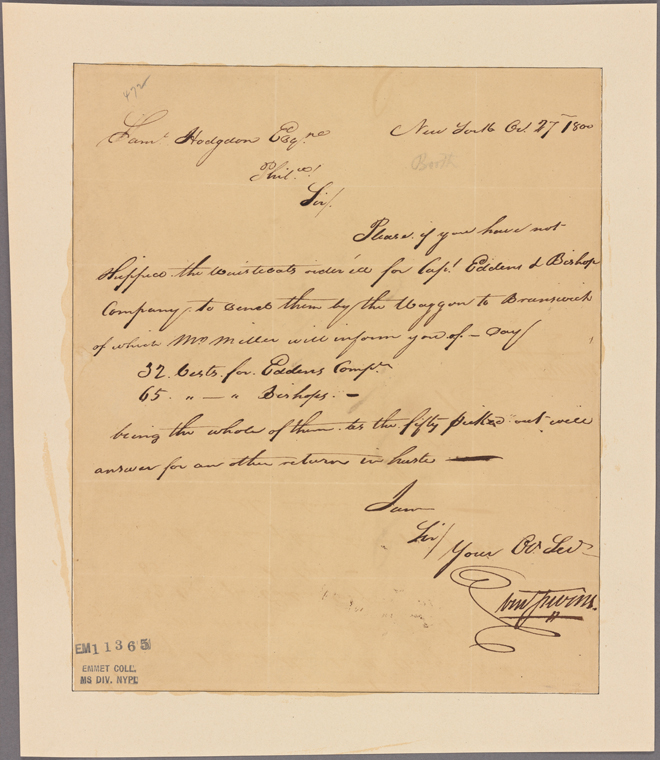 472
New York Oct. 27 1800
Sam.l Hodgdon Esq.re
Phil.a
Sir/
Please if you have not
Shipped the Waistcoats order'ed for Capt. Eddens & Bishop
Company, to send them by the Waggon to Brunswick
of which Mr. Miller will inform you of – Say/
32 Vests. for Eddens Comp.y
65 " — " Bishops. –
being the whole of them. as the fifty picked out will
answer for an other return in haste —
I am
Sir/
Your Ob. Ser.
EM11365
EMMET COLL.
MS DIV. NYPL